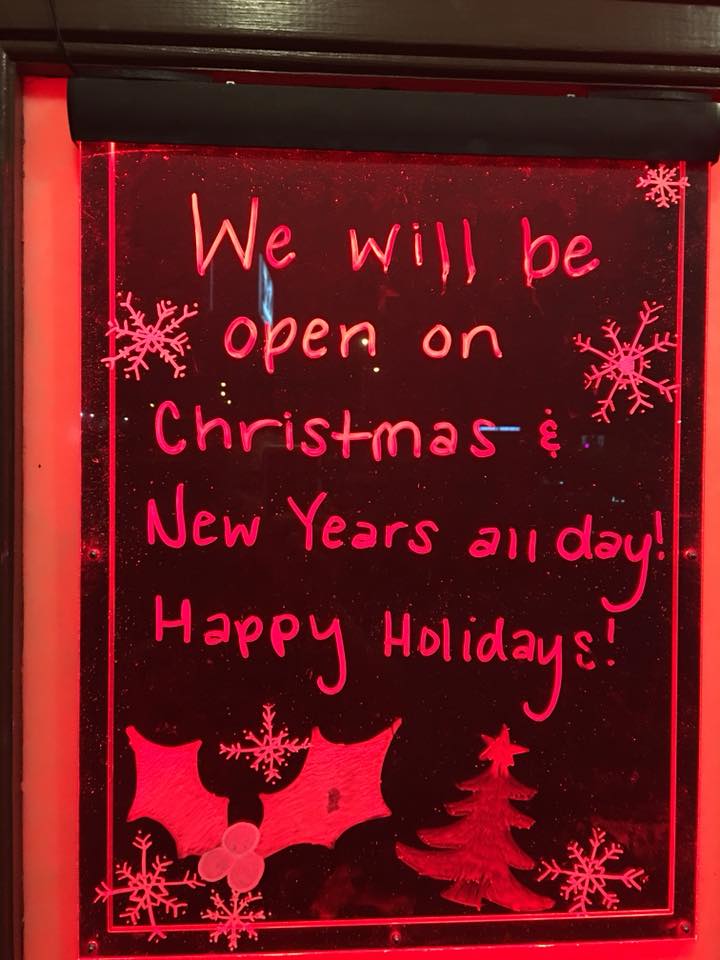 We will be
open on
Christmas &
New Years all day!
Happy Holidays!